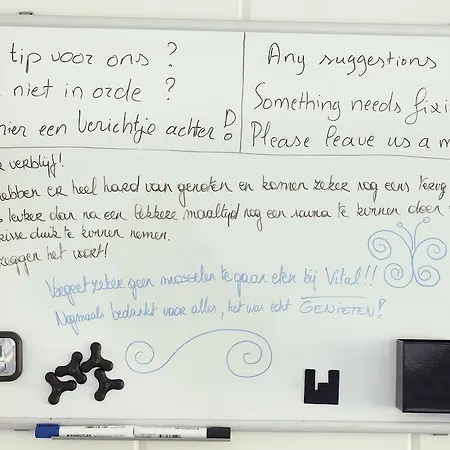 tip voor ons ?
niet in orde ?
hier een berichtje achter !
Any suggestions
Something needs fixi
Please leave us a m
verblijf!
hebben er heel hard van genoten en komen zeker nog eens terug
leuker dan na een lekkere maaltijd nog een sauna te kunnen doen
duik te kunnen nemen.
zeggen het voort!
Vergeet zeker geen mosselen te gaan eten bij Vital!!
Nogmaals bedankt voor alles, het was echt GENIETEN!